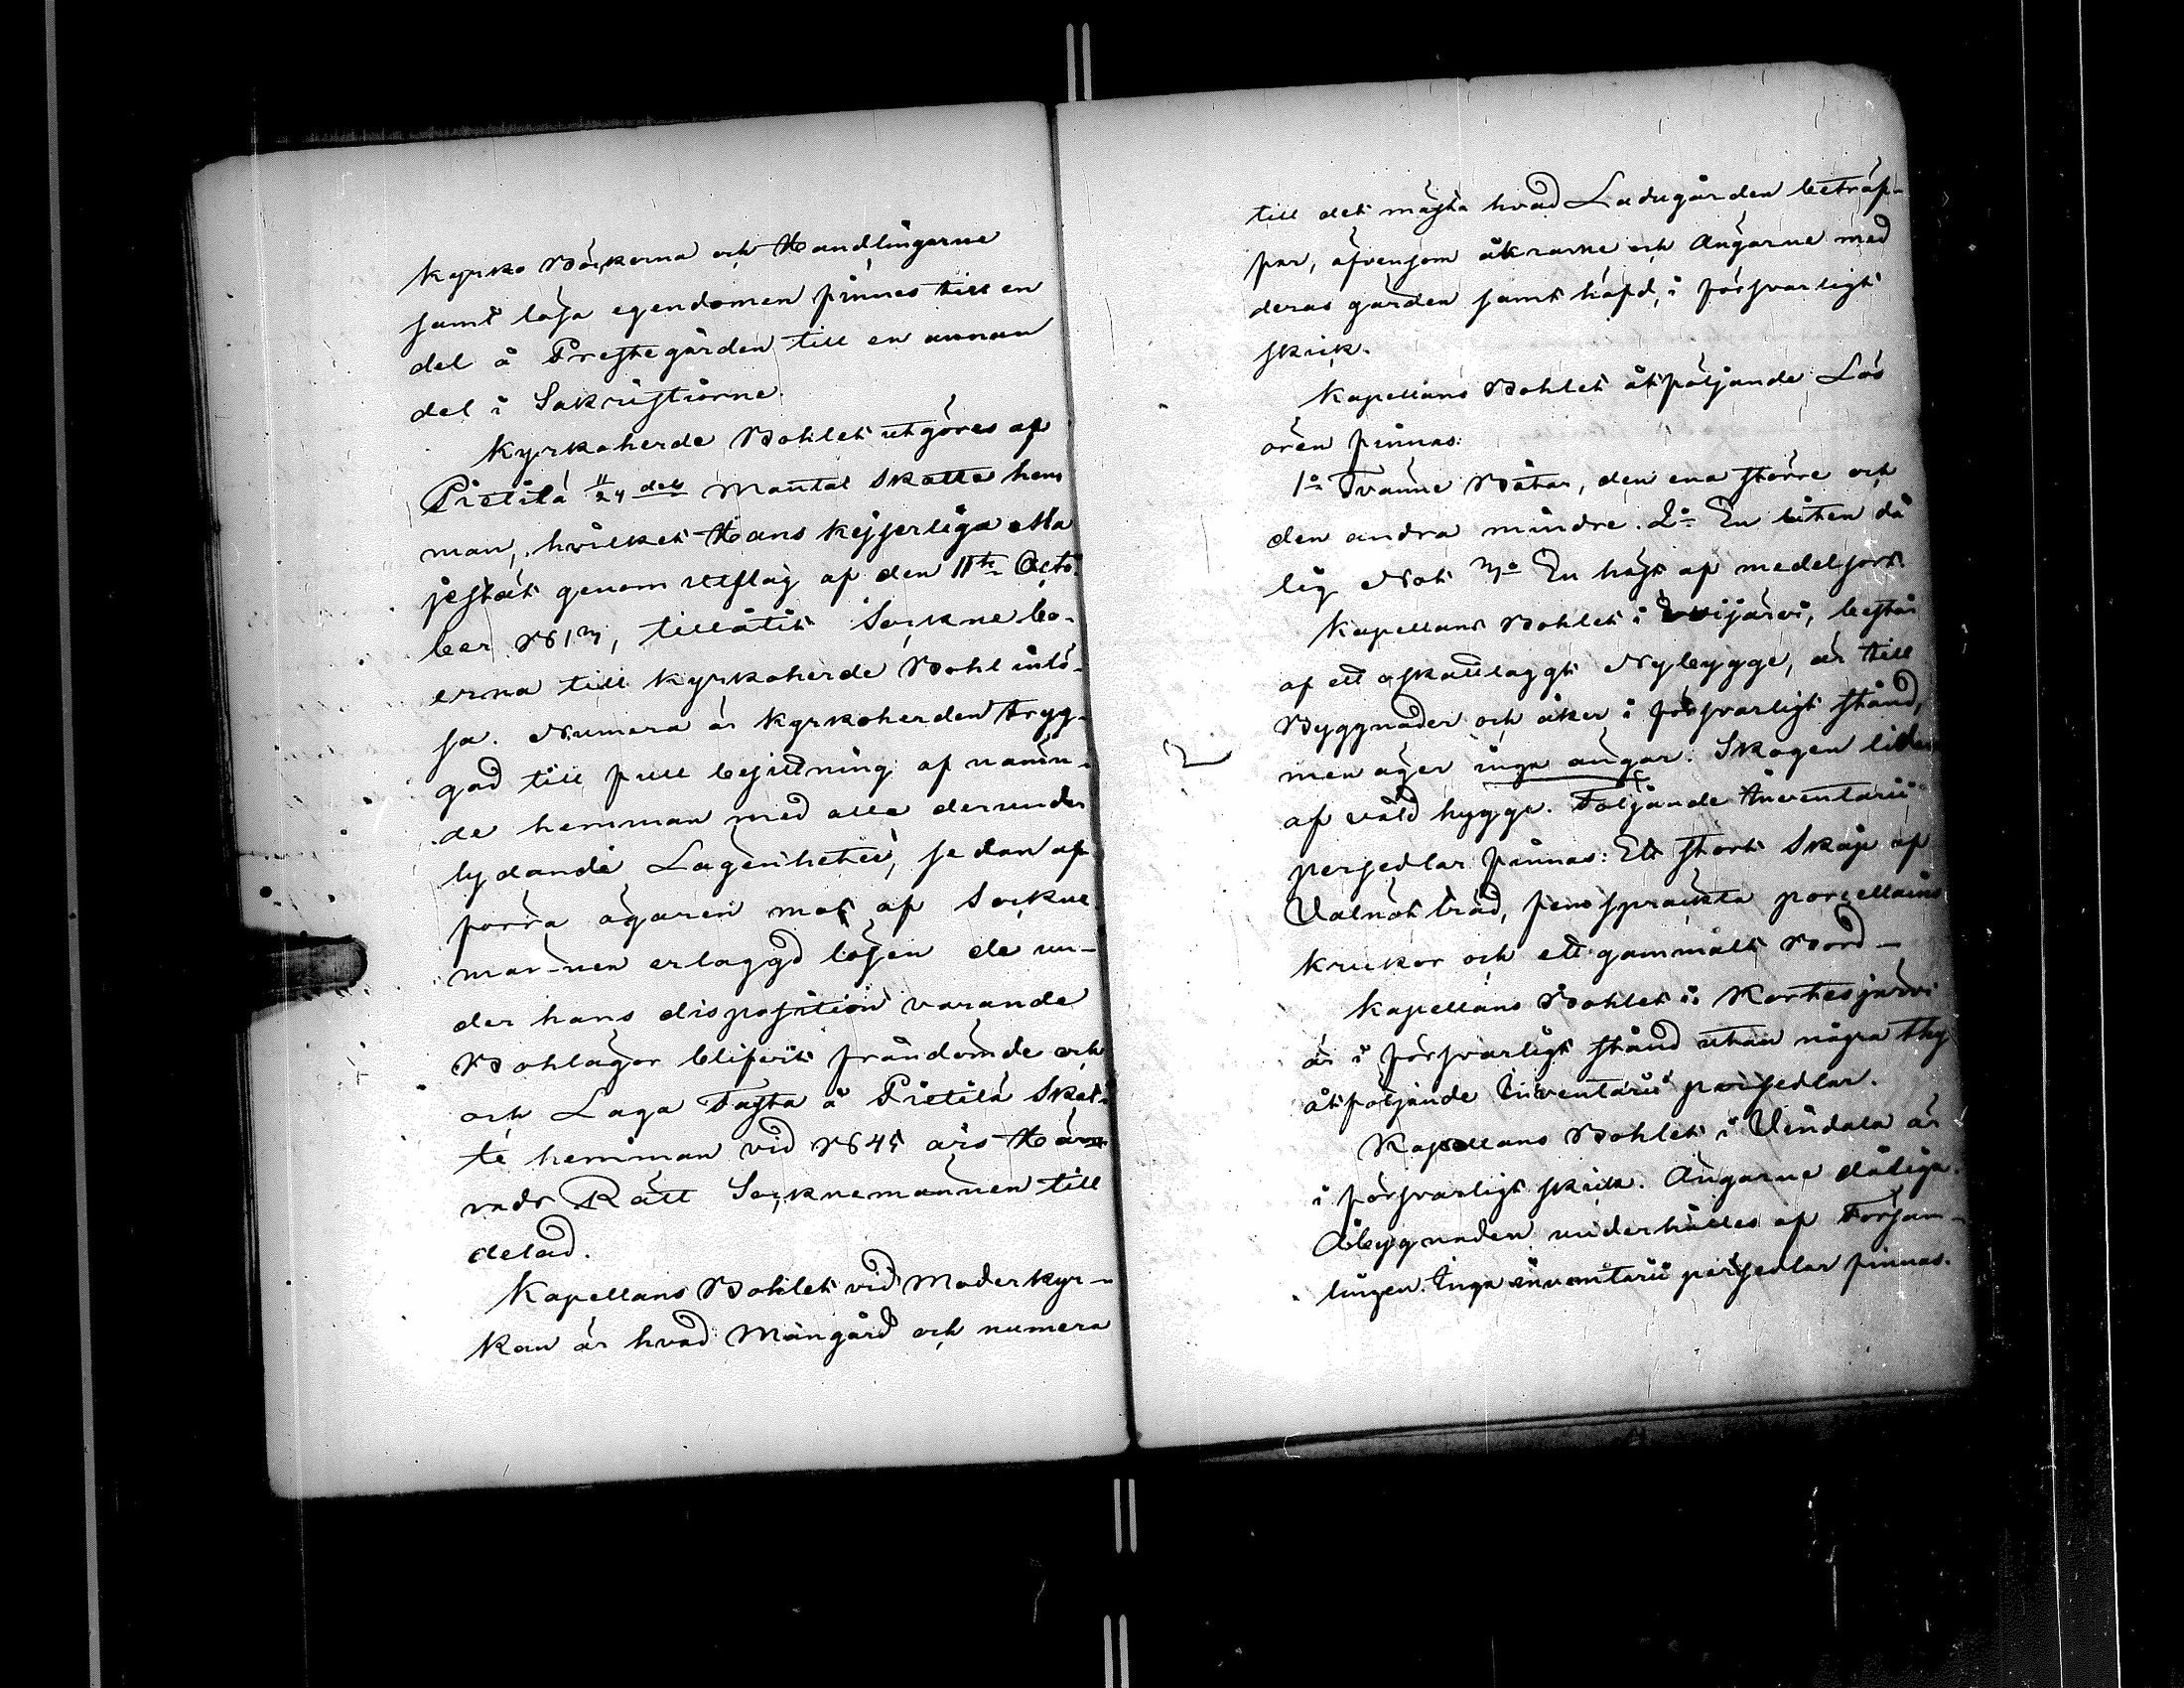 Kyrko Böckerna och Handlingarne
samt lösa egendomen finnes till en
del å Prestegården till en annan
del i Sakristiorne.
Kyrkoherde Bohlet utgöres af
Pietilä 11/24 dels Mantal Skatte hem
man, hvilket Hans Kejserliga Ma
jestät genom utslag af den 11te Octo
ber 1813, tillåtit Sockne bo-
erna till Kyrkoherde Bohl inlö-
sa. Numera är Kyrkoherden tryg-
gad till full besittning af nämn-
de hemman med alla derunder
lydande Lägenheter, sedan af
förra ägaren mot af Sockne
männen erlaggd lösen de un-
der hans disposition varande
Bohlägor blifvit fråndömde och
och Laga Fasta å Pietilä Skat-
te hemman vid 1845 års Hä
rads Rätt Socknemännen till
delad.
Kapellans Bohlet vid Moderkyr-
kan är hvad Mangård och numera
till det mästa hvad Ladugården beträf-
far, äfvensom åkrarne och Ängarne med
deras gärden samt häfd, i försvarligt
skick.
Kapellans Bohlet åtföljande Lös
ören finnas:
1o Tvänne Båtar, den ena större och
den andra mindre. 2o En liten då
lig Not 3o En häst af medelsort.
Kapellans Bohlet i Evijärvi, består
af ett oskattlaggt Nybygge, är till
Byggnader och åker i försvarligt stånd,
men äger inga ängar. Skogen lider
af våld hygge. Följande Inventarii
persedlar finnas: Ett stort Skåp af
Valnöt träd, fem spräckta porcellains
krukor och ett gammalt Bord -
Kapellans Bohlet i Kortesjärvi
är i försvarligt stånd utan några thy
åtföljande Inventarii persedlar.
Kapellans Bohlet i Vindala är
i försvarligt skick. Ängarne dåliga.
Åbyggnaden underhålles af Försam-
lingen. Inga inventarii persedlar finnas.